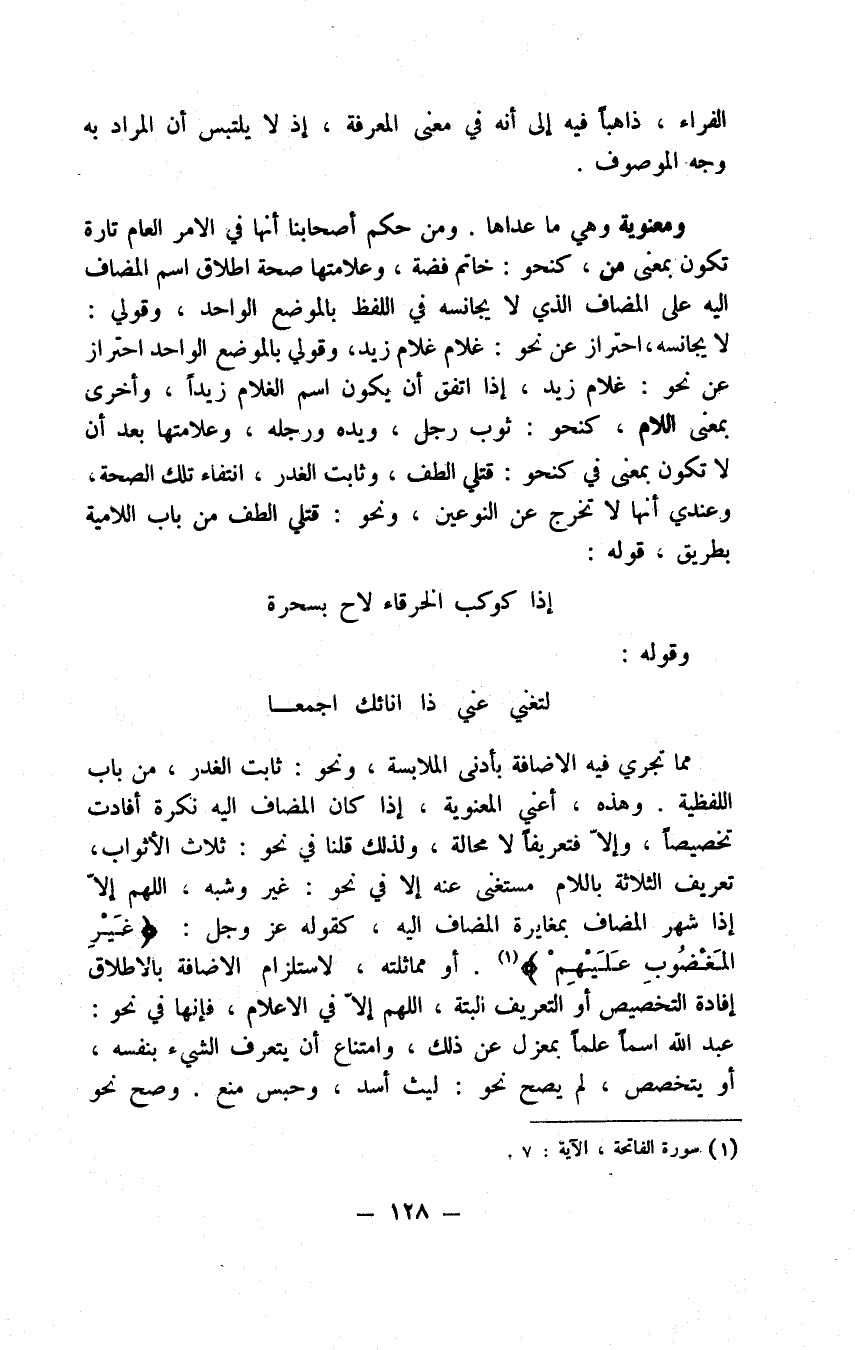 الفراء ، ذاهباً فيه إلى أنه في معنى المعرفة ، إذ لا يلتبس أن المراد به
وجه الموصوف .
ومعنوية وهي ما عداها . ومن حكم أصحابنا أنها في الامر العام تارة
تكون بمعنى من ، كنحو : خاتم فضة ، وعلامتها صحة اطلاق اسم المضاف
اليه على المضاف الذي لا يجانسه في اللفظ بالموضع الواحد ، وقولي :
لا يجانسه،احتراز عن نحو : غلام غلام زيد، وقولي بالموضع الواحد احتراز
عن نحو : غلام زيد ، إذا اتفق أن يكون اسم الغلام زيداً ، وأخرى
بمعنى اللام ، كنحو : ثوب رجل ، ويده ورجله ، وعلامتها بعد أن
لا تكون بمعنى في كنحو : قتلي الطف ، وثابت الغدر ، انتفاء تلك الصحة،
وعندي أنها لا تخرج عن النوعين ، ونحو : قتلي الطف من باب اللامية
بطريق ، قوله :
إذا كوكب الخرقاء لاح بسحرة
وقوله :
لتغني عني ذا انائك اجمعـــا
مما تجري فيه الاضافة بأدنى الملابسة ، ونحو : ثابت الغدر ، من باب
اللفظية . وهذه ، أعني المعنوية ، إذا كان المضاف اليه نكرة أفادت
تخصيصاً ، وإلاّ فتعريفاً لا محالة ، ولذلك قلنا في نحو : ثلاث الأثواب،
تعريف الثلاثة باللام مستغنى عنه إلا في نحو : غير وشبه ، اللهم إلاّ
إذا شهر المضاف بمغايرة المضاف اليه ، كقوله عز وجل : ﴿ غَيْرِ
المَغْضُوبِ عَلَيْهِمْ ﴾(١) . أو مماثلته ، لاستلزام الاضافة بالاطلاق
إفادة التخصيص أو التعريف البتة ، اللهم إلاّ في الاعلام ، فإنها في نحو :
عبد الله اسماً علماً بمعزل عن ذلك ، وامتناع أن يتعرف الشيء بنفسه ،
أو يتخصص ، لم يصح نحو : ليث أسد ، وحبس منع . وصح نحو
(١) سورة الفاتحة ، الآية : ٧ .
— ١٢٨ —